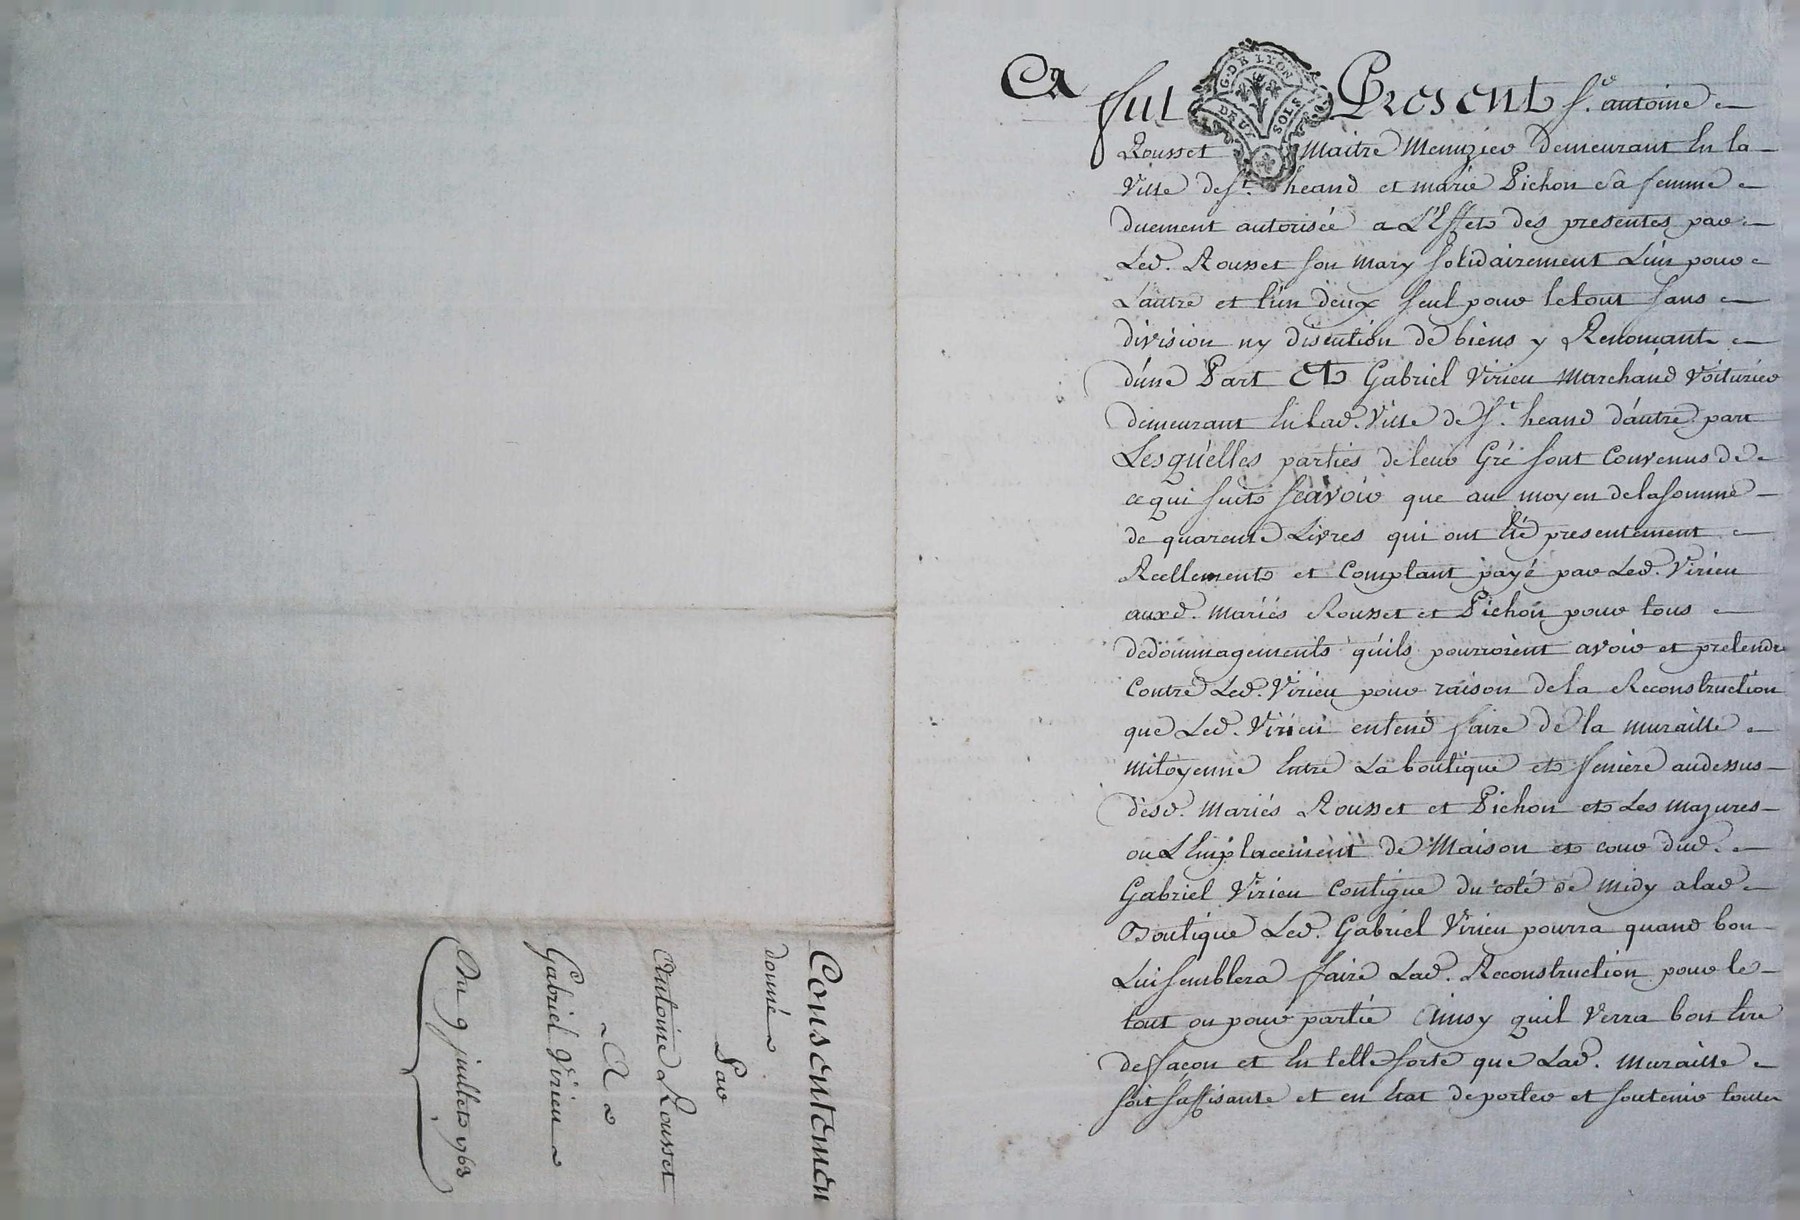 Consentemen
donné
Par
Antoine Rousset
A
Gabriel Virieu
Du 9 juillet 1763
G. DE LYON
DEUX SOLS
fut Present Sr. antoine
Rousset Maitre Menuzier demeurant En la
Ville de St. heand et marie Pichon sa femme
duement autorisée a L'Effet des presentes par
Led. Rousset son mary solidairement L'un pour
L'autre et l'un deux seul pour letout sans
division ny discution de biens y Renonçant
d'une Part Et Gabriel Virieu Marchand Voiturier
demeurant En Lad. Ville de St. heand d'autre part
Lesquelles parties de leur Gré sont Convenus de
ce qui suit Scavoir que au moyen delasomme
de quarente Livres qui ont Eté presentement
Reellement et Comptant payé par Led. Virieu
auxd. Mariés Rousset et Pichon pour tous
dedommagements qu'ils pourroient avoir et pretendre
Contre Led. Virieu pour raison dela Reconstruction
que Led. Virieu entend faire de la muraille
mitoyenne Entre La boutique et feniere audessus
desd. Mariés Rousset et Pichon et Les mazures
ou L'Emplacement de Maison et cour dud.
Gabriel Virieu Contigue du coté de midy a lad.
Boutique Led. Gabriel Virieu pourra quand bon
Luisemblera faire Lad. Reconstruction pour le
tout ou pour partie Ainsy quil Verra bon Etre
defacon et En telle sorte que Lad. muraille
soit suffisante et en Etat deporter et soutenir toute